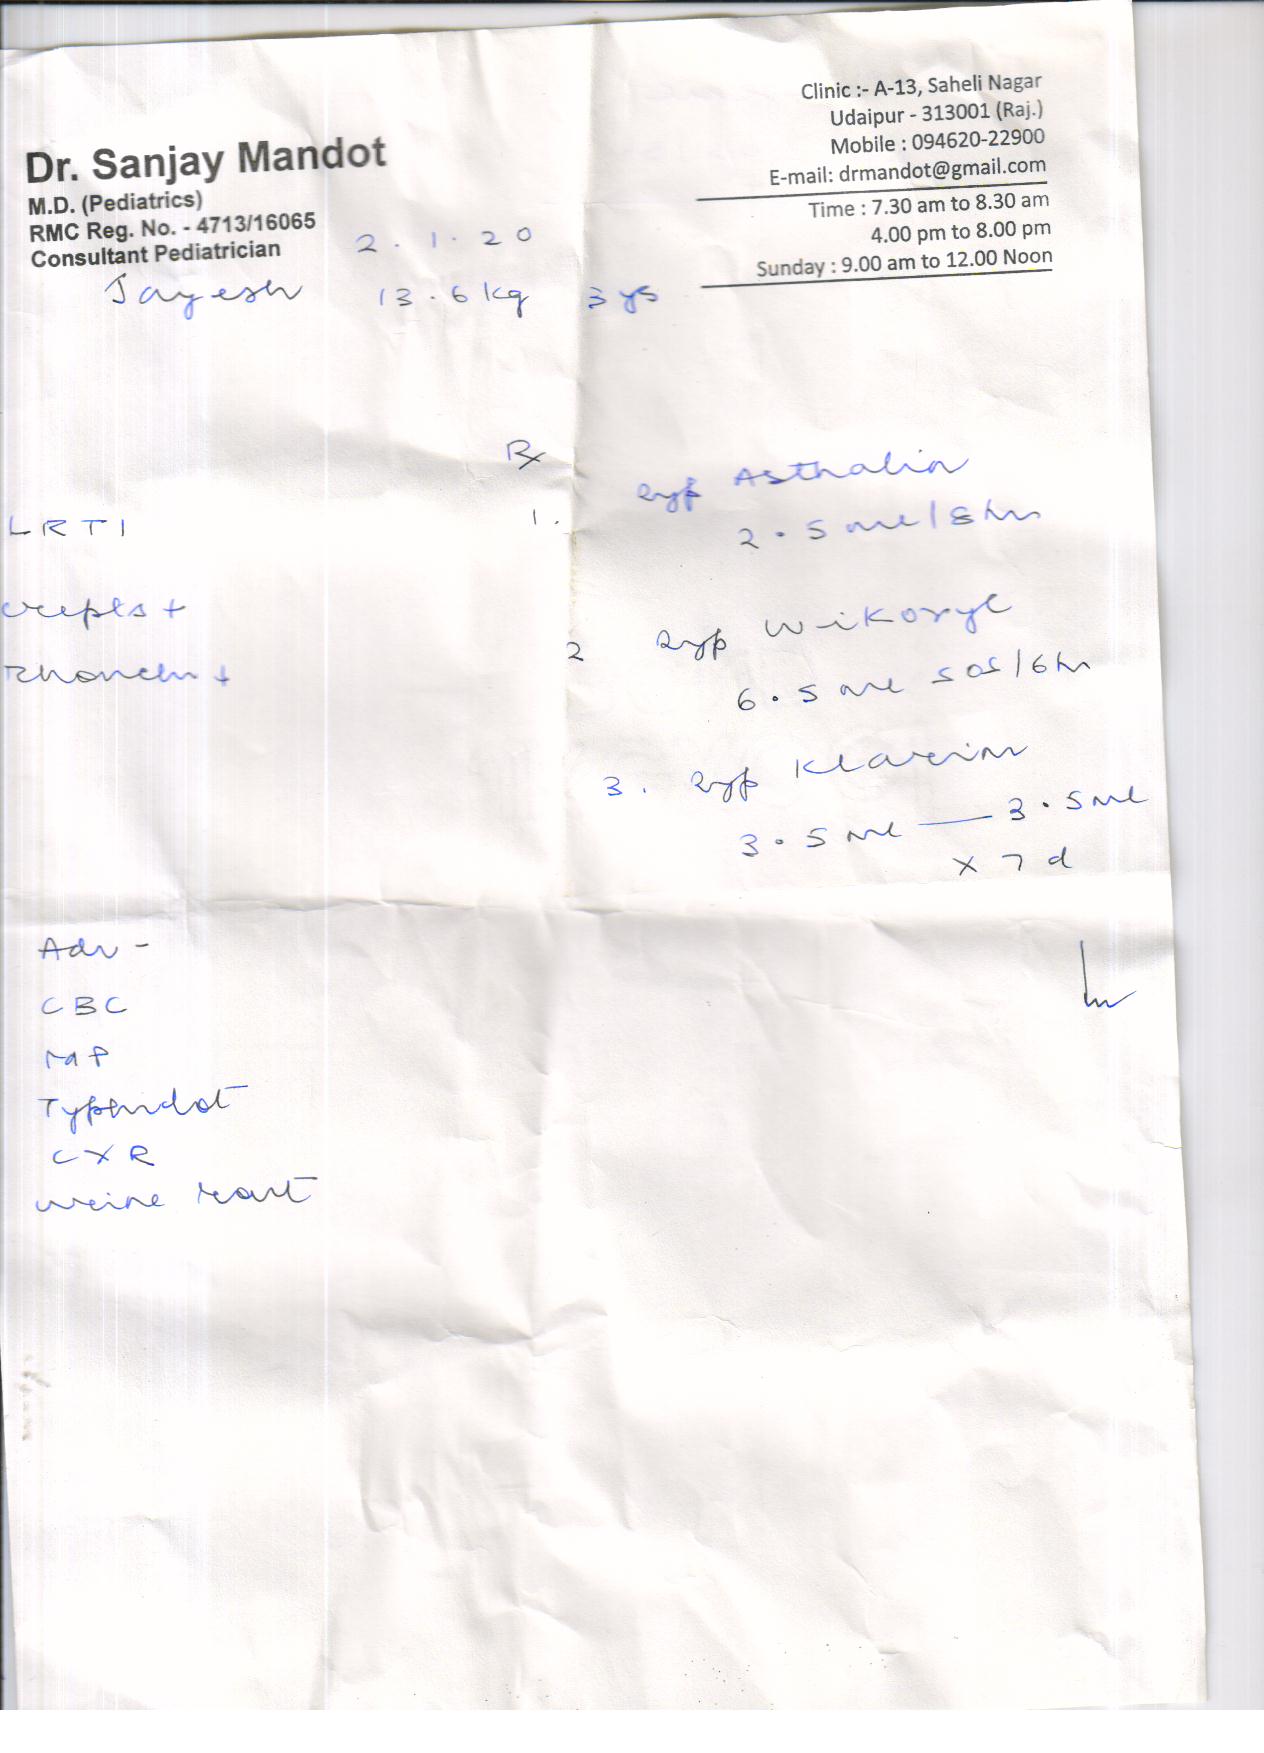 Dr. Sanjay Mandot
M.D. (Pediatrics)
RMC Reg. No. - 4713/16065
Consultant Pediatrician
Clinic :- A-13, Saheli Nagar
Udaipur - 313001 (Raj.)
Mobile : 094620-22900
E-mail: drmandot@gmail.com
Time : 7.30 am to 8.30 am
4.00 pm to 8.00 pm
Sunday : 9.00 am to 12.00 Noon
2.1.20
Jayesh 13.6 kg 3 ys
Rx
LRTI
crepts +
Rhonchi +
1. Syp Asthalin
2.5 ml / 8 hr
2 Syp Wikoryl
6.5 ml SOS / 6 hr
3. Syp
3.5 ml — 3.5 ml
x 7 d
Adv -
CBC
MP
Typhidot
CXR
urine rout